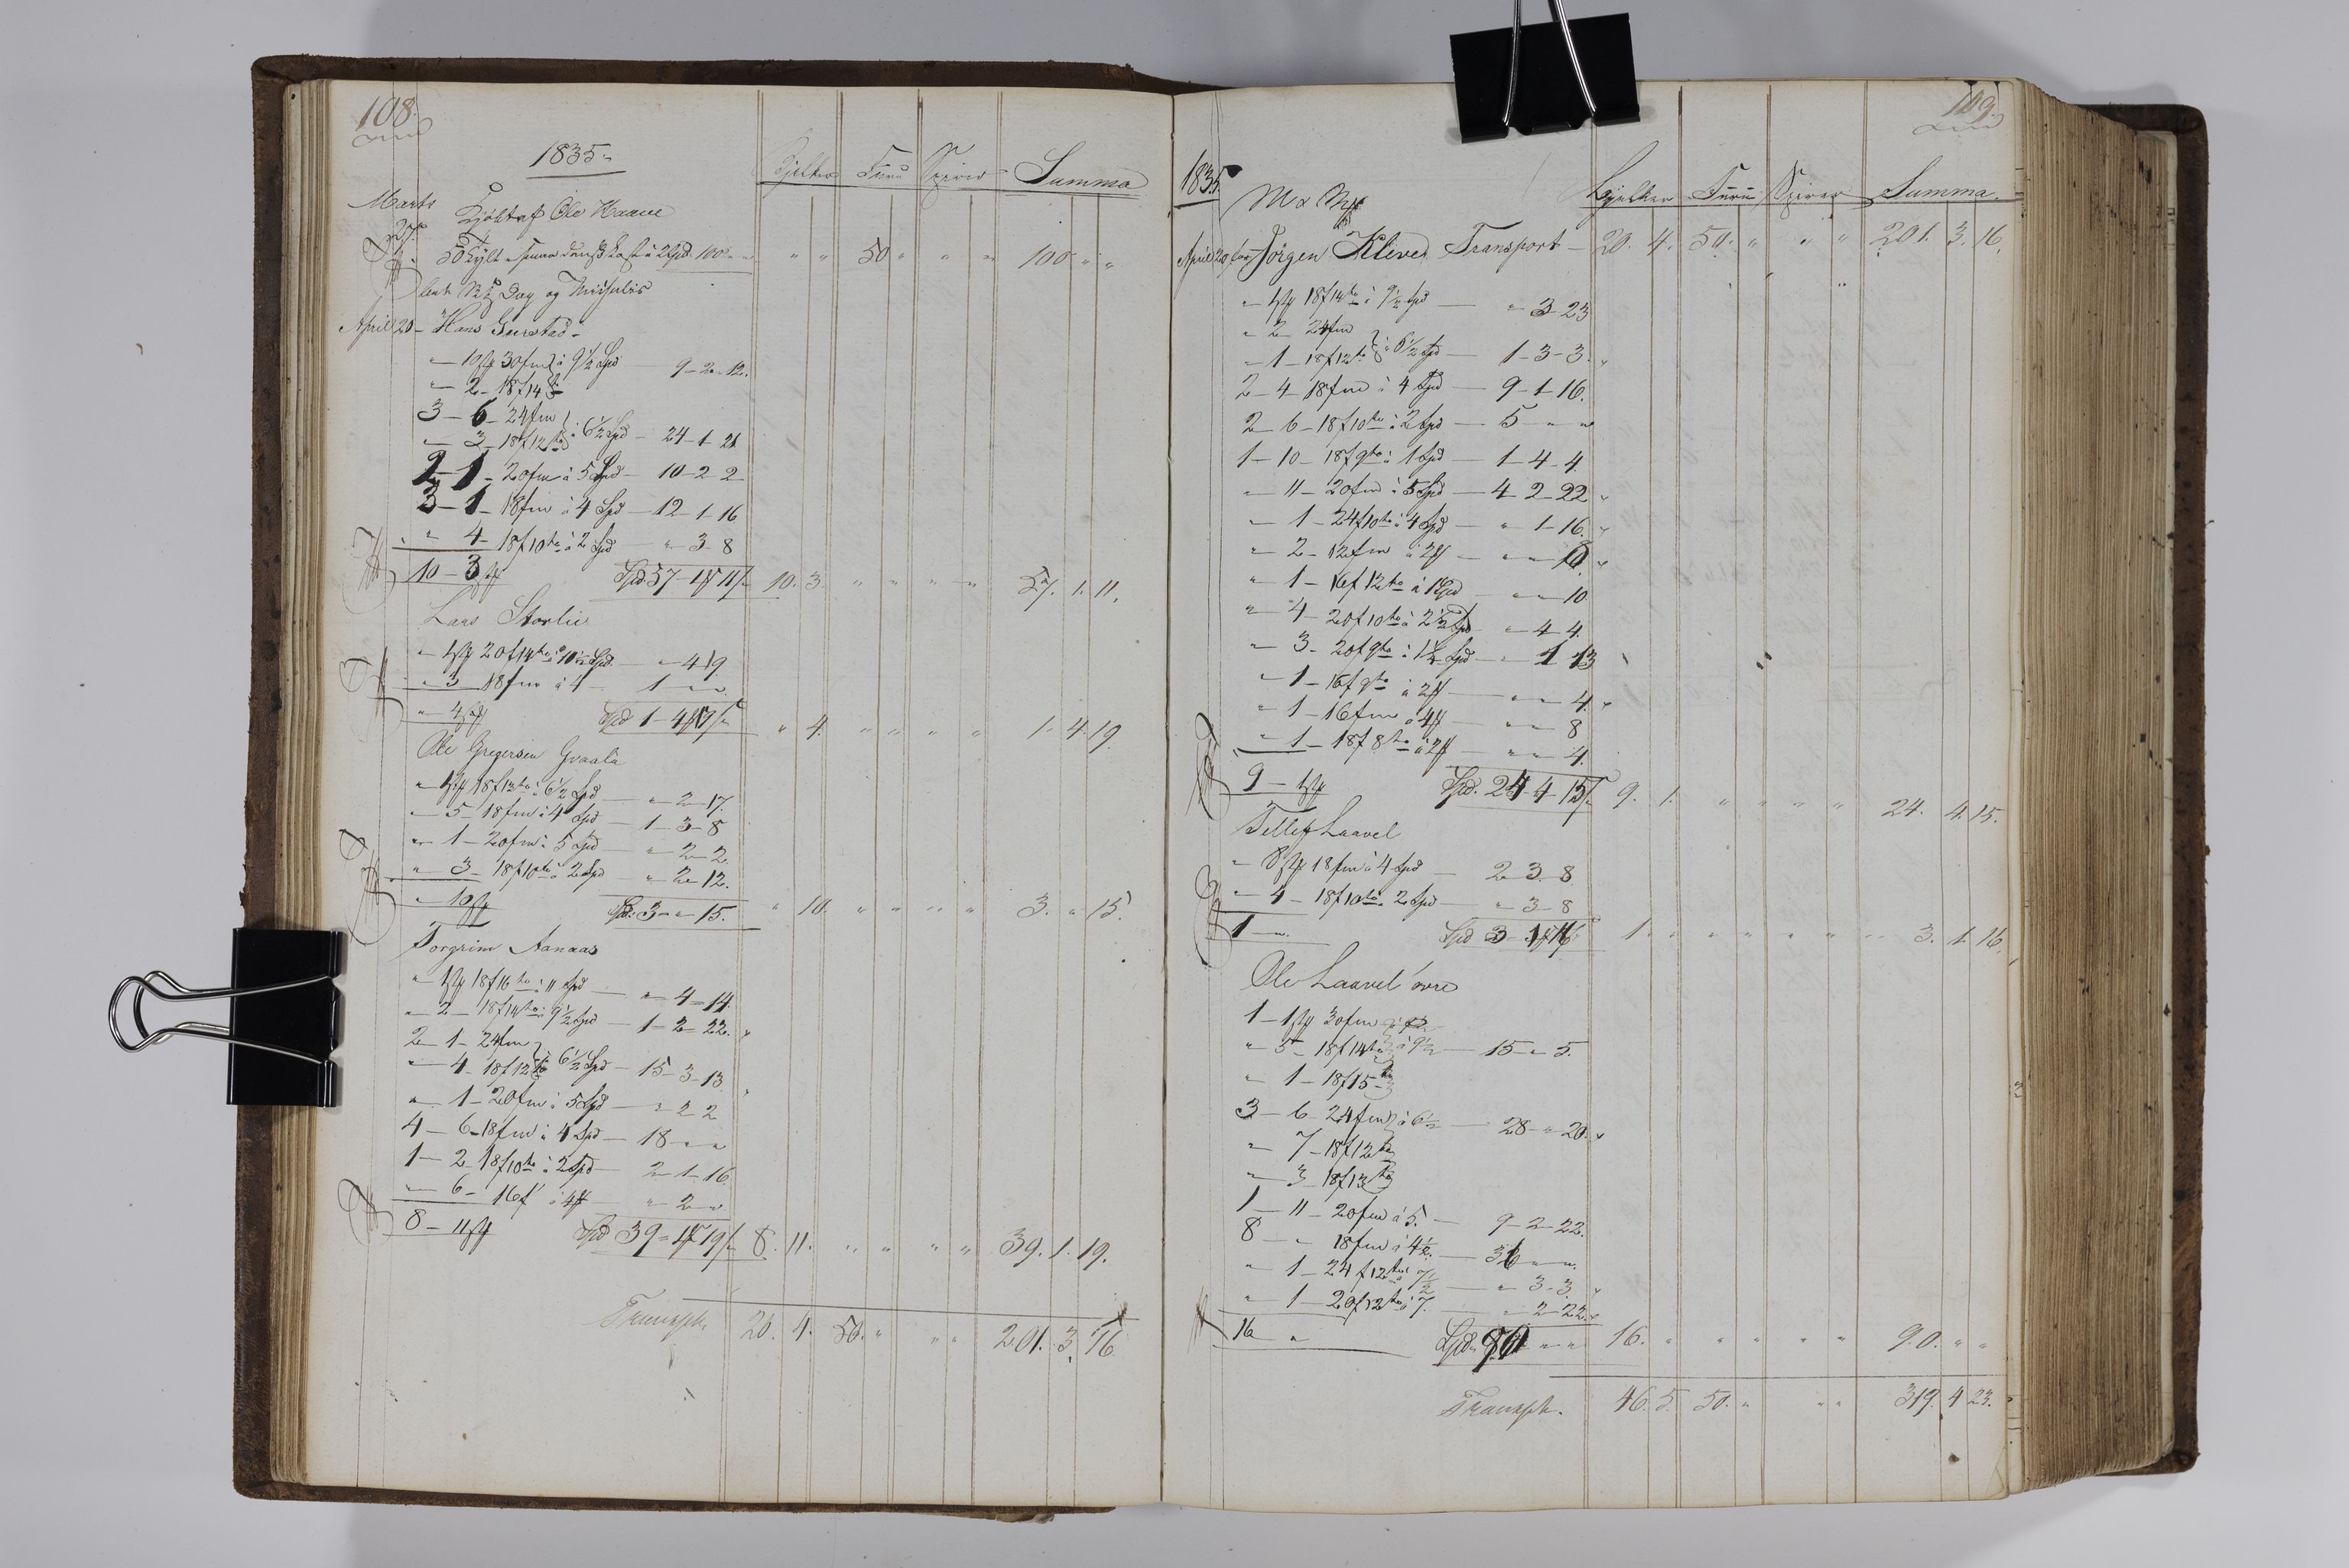 108.
1835.
Bjelker Furu Spirer Summa
Marts
27. Kjöbt af Ole Haave
50 Tylt Furu à 2 Spd. 100 " " " " 50 " " " 100 " "
Dag og
April 20 - Hans Gurstad -
" - 10 st 30 fm à 9½ Spd 9 - 2 - 12.
" - 2 - 18 f 14 to
3 - 6 - 24 fm
" - 3 - 18 f 12 to à 6½ Spd - 24 - 1 - 21
2 - 1 - 20 fm à 5 Spd - 10 - 2 - 2
3 - 1 - 18 fm à 4 Spd - 12 - 1 - 16
" 4 - 18 f 10 to à 2 Spd " - 3 - 8
10 - 3 st Spd 57 - 1 # 11 10. 3. " " " " 57. 1. 11.
Lars Storlie
" - 1 st 20 f 14 to à 11½ Spd - " - 4 19
" - 3 18 fm à 4 - 1 - " -
" - 4 st Spd 1 - 4 # 19 " 4. " " " " 1. 4. 19.
Ole Gregersen Graalä
" - 1 st 18 f 12 to à 6½ Spd - " - 2 - 17.
" - 5 - 18 fm à 4 Spd - 1 - 3 - 8
" - 1 - 20 fm à 5 Spd - " - 2 - 2
" - 3 - 18 f 10 to à 2 Spd - " - 2 - 12.
" - 10 st Spd: 3 - " - 15. " 10. " " " " 3. " 15.
Torgrim Aanaas
" - 1 st 18 f 16 to à 11 Spd - " - 4 - 14.
" - 2 - 18 f 14 to à 9½ Spd - 1 - 2 - 22.
2 - 1 - 24 fm
" - 4 - 18 f 12 to à 6½ Spd - 15 - 3 - 13
" - 1 - 20 fm à 5 Spd - " - 2 - 2
4 - 6 - 18 fm à 4 Spd - 18 - " "
1 - 2 - 18 f 10 to à 2 Spd - 2 - 1 - 16.
" - 6 - 16 f à 4 # - " 2 - "
8 - 11 st Spd 39 - 1 # 19 8. 11. " " " " 39. 1. 19.
Transpt. 20. 4. 50. " " " 201. 3. 16.
109.
1835.
Bjelker Furu Spirer Summa.
April 20 Jörgen Klives Transport - 20. 4. 50. " " " 201. 3. 16.
" - 1 st 18 f 14 to à 9½ Spd - " 3 - 23
" - 2 - 24 fm
" - 1 - 18 f 12 to à 6½ Spd - 1 - 3 - 3.
2 - 4 - 18 fm à 4 Spd - 9 - 1 - 16.
2 - 6 - 18 f 10 to à 2 Spd - 5 " "
1 - 10 - 18 f 9 to à 1 Spd - 1 - 4 - 4.
" - 11 - 20 fm à 5 Spd - 4 - 2 - 22
" - 1 - 24 f 10 to à 4 Spd - " 1 - 16.
" - 2 - 12 fm à 2 # - " - " 10.
" - 1 - 16 f 12 to à 1 Spd - " - " 10
" - 4 - 20 f 10 to à 2½ Spd " - 4 - 4.
" - 3 - 20 f 9 to à Spd - " 1 13
" - 1 - 16 f 9 to à 2 # - " - " 4.
" - 1 - 16 fm à 4 # - " " 8
" - 1 - 18 f 8 to à 2 # - " " 4.
9 - 1 st Spd. 24 - 4 - 15 9. 1. " " " " 24. 4. 15.
Tellef Laavel
" - 8 st 18 fm à 4 Spd - 2 - 3 - 8
" - 4 - 18 f 10 to à 2 Spd - " 3 - 8
1 - " Spd 3 - 1 # 16 1. " " " " " 3. 1. 16.
Ole Laavel övre
1 - 1 st 30 fm
" - 5 - 18 f 14 to à 9½ - 15 - " 5.
" - 1 - 18 f 15 to
3 - 6 - 24 fm à 6½ - 28 - " - 20.
" - 7 - 18 f 12 to
" - 3 - 18 f 13 to
1 - 11 - 20 fm à 5. - 9 - 2 - 22.
8 - " 18 fm à 4½. - 36 " - ".
" - 1 - 24 f 12 to à 7½ - " 3 - 3.
" - 1 - 20 f 12 to à 7. - " 2 - 22.
16 " Spd. 90 " " 16. " " " " " 90. " "
Transpt. 46. 5. 50. " " " 319. 4. 23.